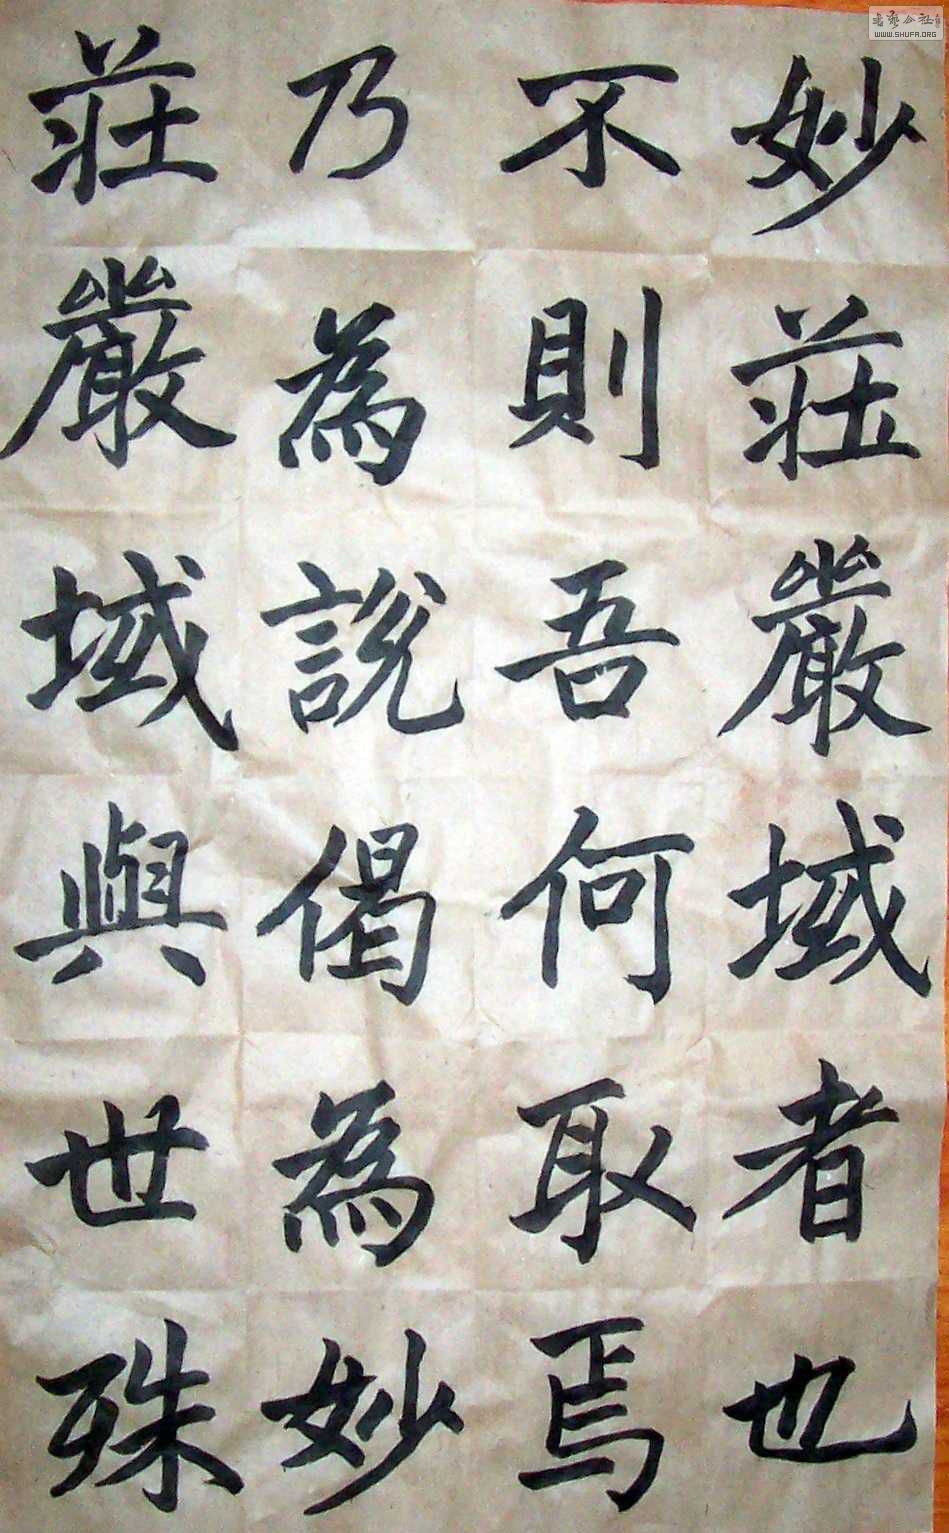 妙莊嚴域者也
不則吾何取焉
乃為說偈為妙
莊嚴域與世殊
WWW.SHUFA.ORG